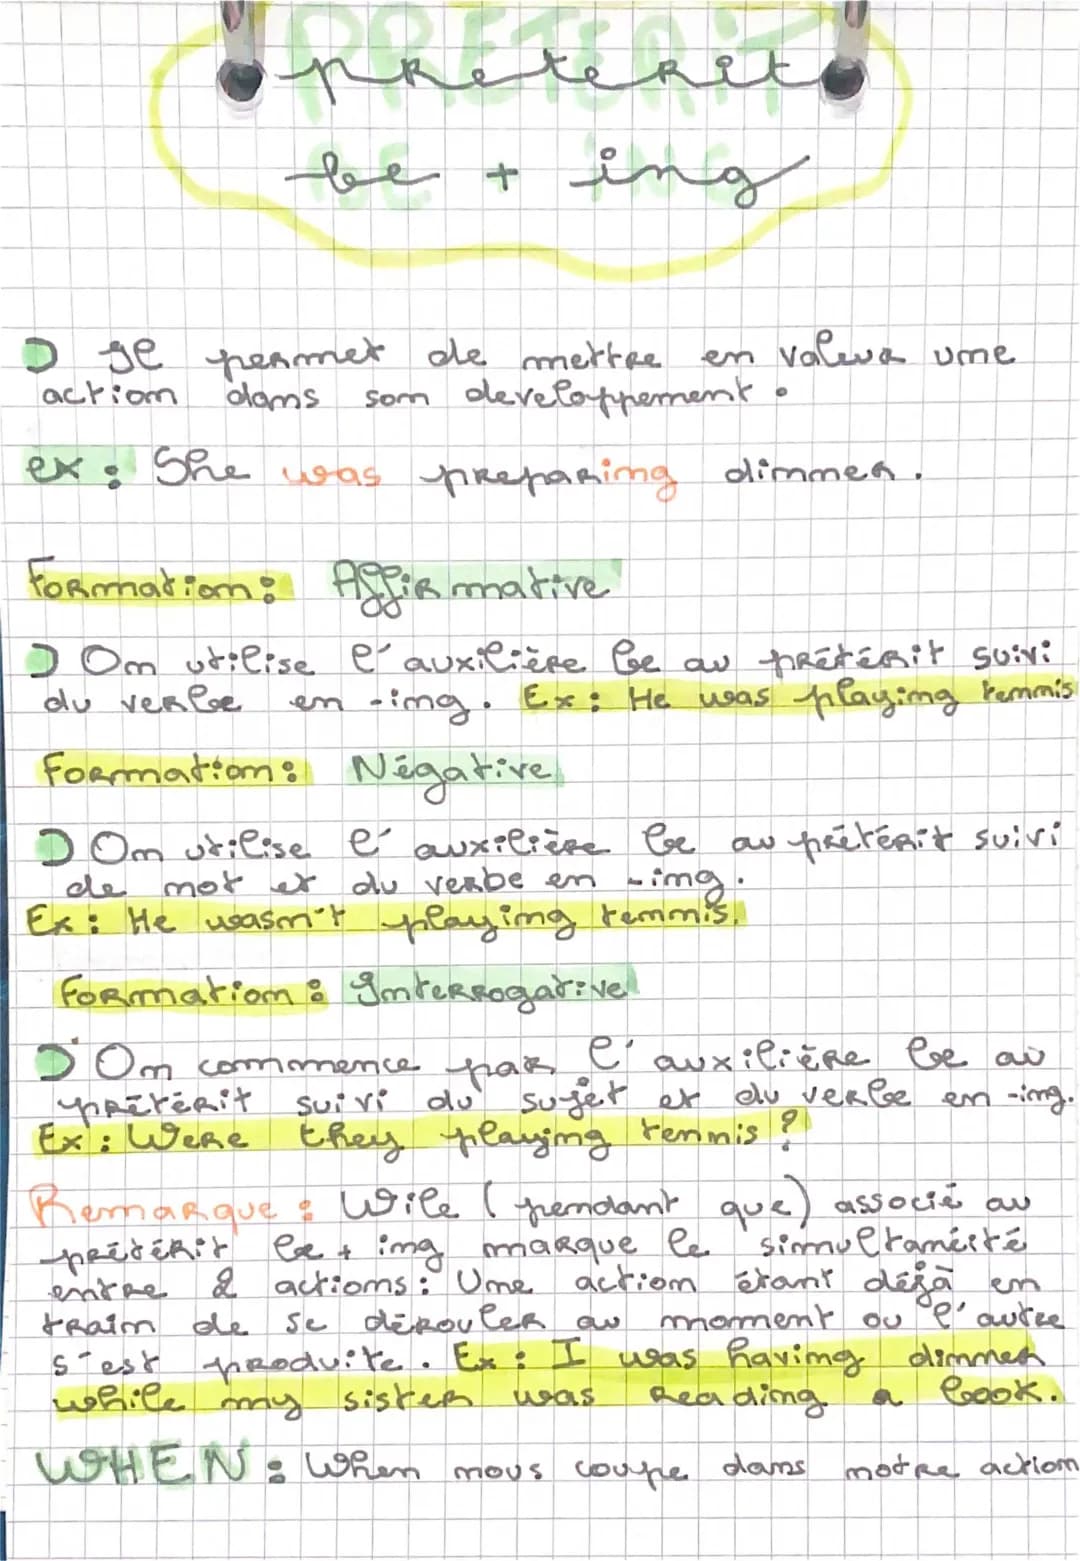 PRETERIT
preterit
BE ING
be + ing
Il permet de mettre en valeur une
action dans son developpement.
ex : She was preparing dinner.
Formation : Affirmative
On utilise l'auxilière be au prétérit suivi
du verbe en -ing. Ex : He was playing tennis
Formation : Négative
On utilise l'auxilière be au prétérit suivi
de not et du verbe en -ing.
Ex : He wasn't playing tennis.
Formation : Interrogative
On commence par l'auxilière be au
prétérit suivi du sujet et du verbe en -ing.
Ex : Were they playing tennis ?
Remarque : Wile (pendant que) associé au
prétérit be + ing marque le simultanéité
entre 2 actions : Une action étant déjà en
train de se dérouler au moment ou l'autre
s'est produite. Ex : I was having dinner
while my sister was reading a book.
WHEN : When nous coupe dans notre action